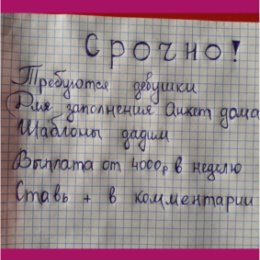 Срочно!
Требуются девушки
Для заполнения анкет дома
Шаблоны дадим
Выплата от 4000р в неделю
Ставь + в комментарии